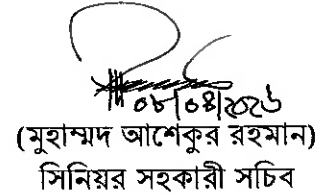 ০৮/০৪/২০২৬
(মুহাম্মদ আশেকুর রহমান)
সিনিয়র সহকারী সচিব